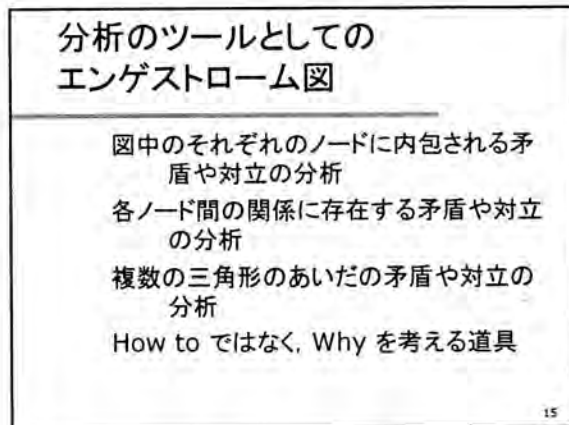 分析のツールとしての
エンゲストローム図
図中のそれぞれのノードに内包される矛
盾や対立の分析
各ノード間の関係に存在する矛盾や対立
の分析
複数の三角形のあいだの矛盾や対立の
分析
How to ではなく, Why を考える道具
15